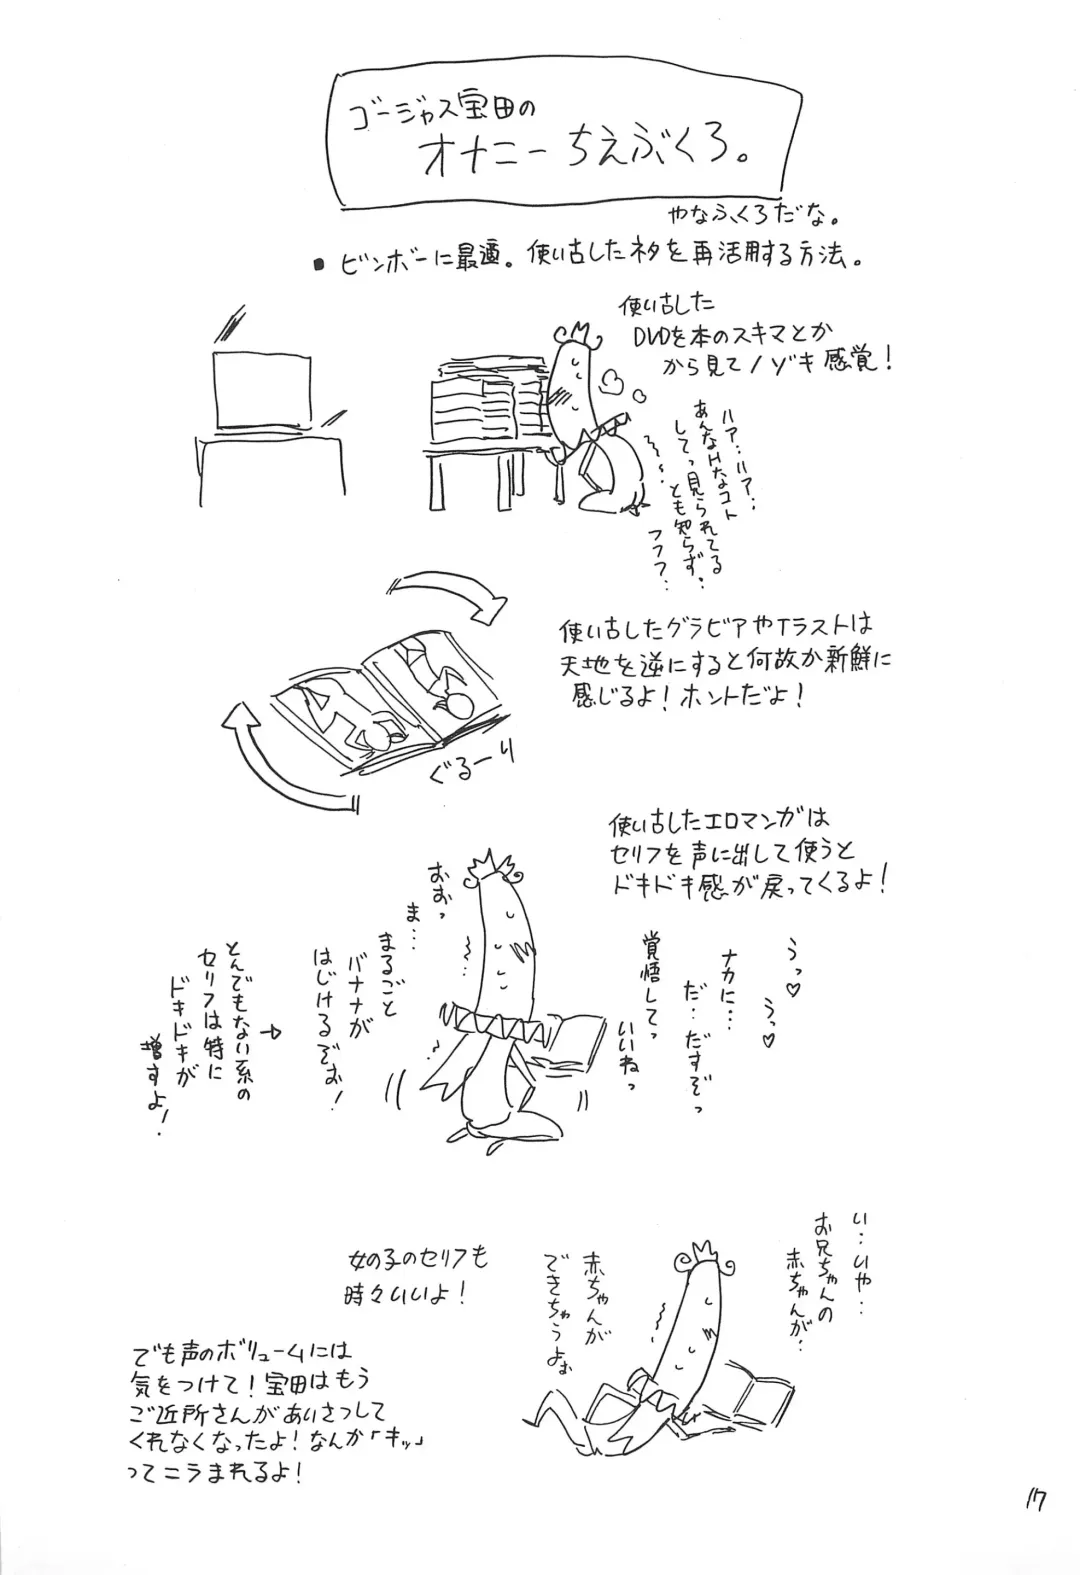 ゴージャス宝田の
オナニーちえぶくろ。
やなふくろだな。
・ビンボーに最適。使い古したネタを再活用する方法。
使い古した
DVDを本のスキマとか
から見てノゾキ感覚!
ハァ…ハァ…
あんなHなコト
してっ見られてる
とも知らず…
フフフ…
使い古したグラビアやイラストは
天地を逆にすると何故か新鮮に
感じるよ!ホントだよ!
ぐるーり
使い古したエロマンガは
セリフを声に出して使うと
ドキドキ感が戻ってくるよ!
うっ♡
うっ♡
ナカに…
だ…だすぞっ
覚悟してっ
いいねっ
おおっ
ま…
まるごと
バナナが
はじけるぞお!
とんでもない系の
セリフは特に
ドキドキが
増すよ!
女の子のセリフも
時々いいよ!
い…いや…
お兄ちゃんの
赤ちゃんが…
赤ちゃんが
できちゃうよぉ
でも声のボリュームには
気をつけて!宝田はもう
ご近所さんがあいさつして
くれなくなったよ!なんか「キッ」
ってこうまれるよ!
17